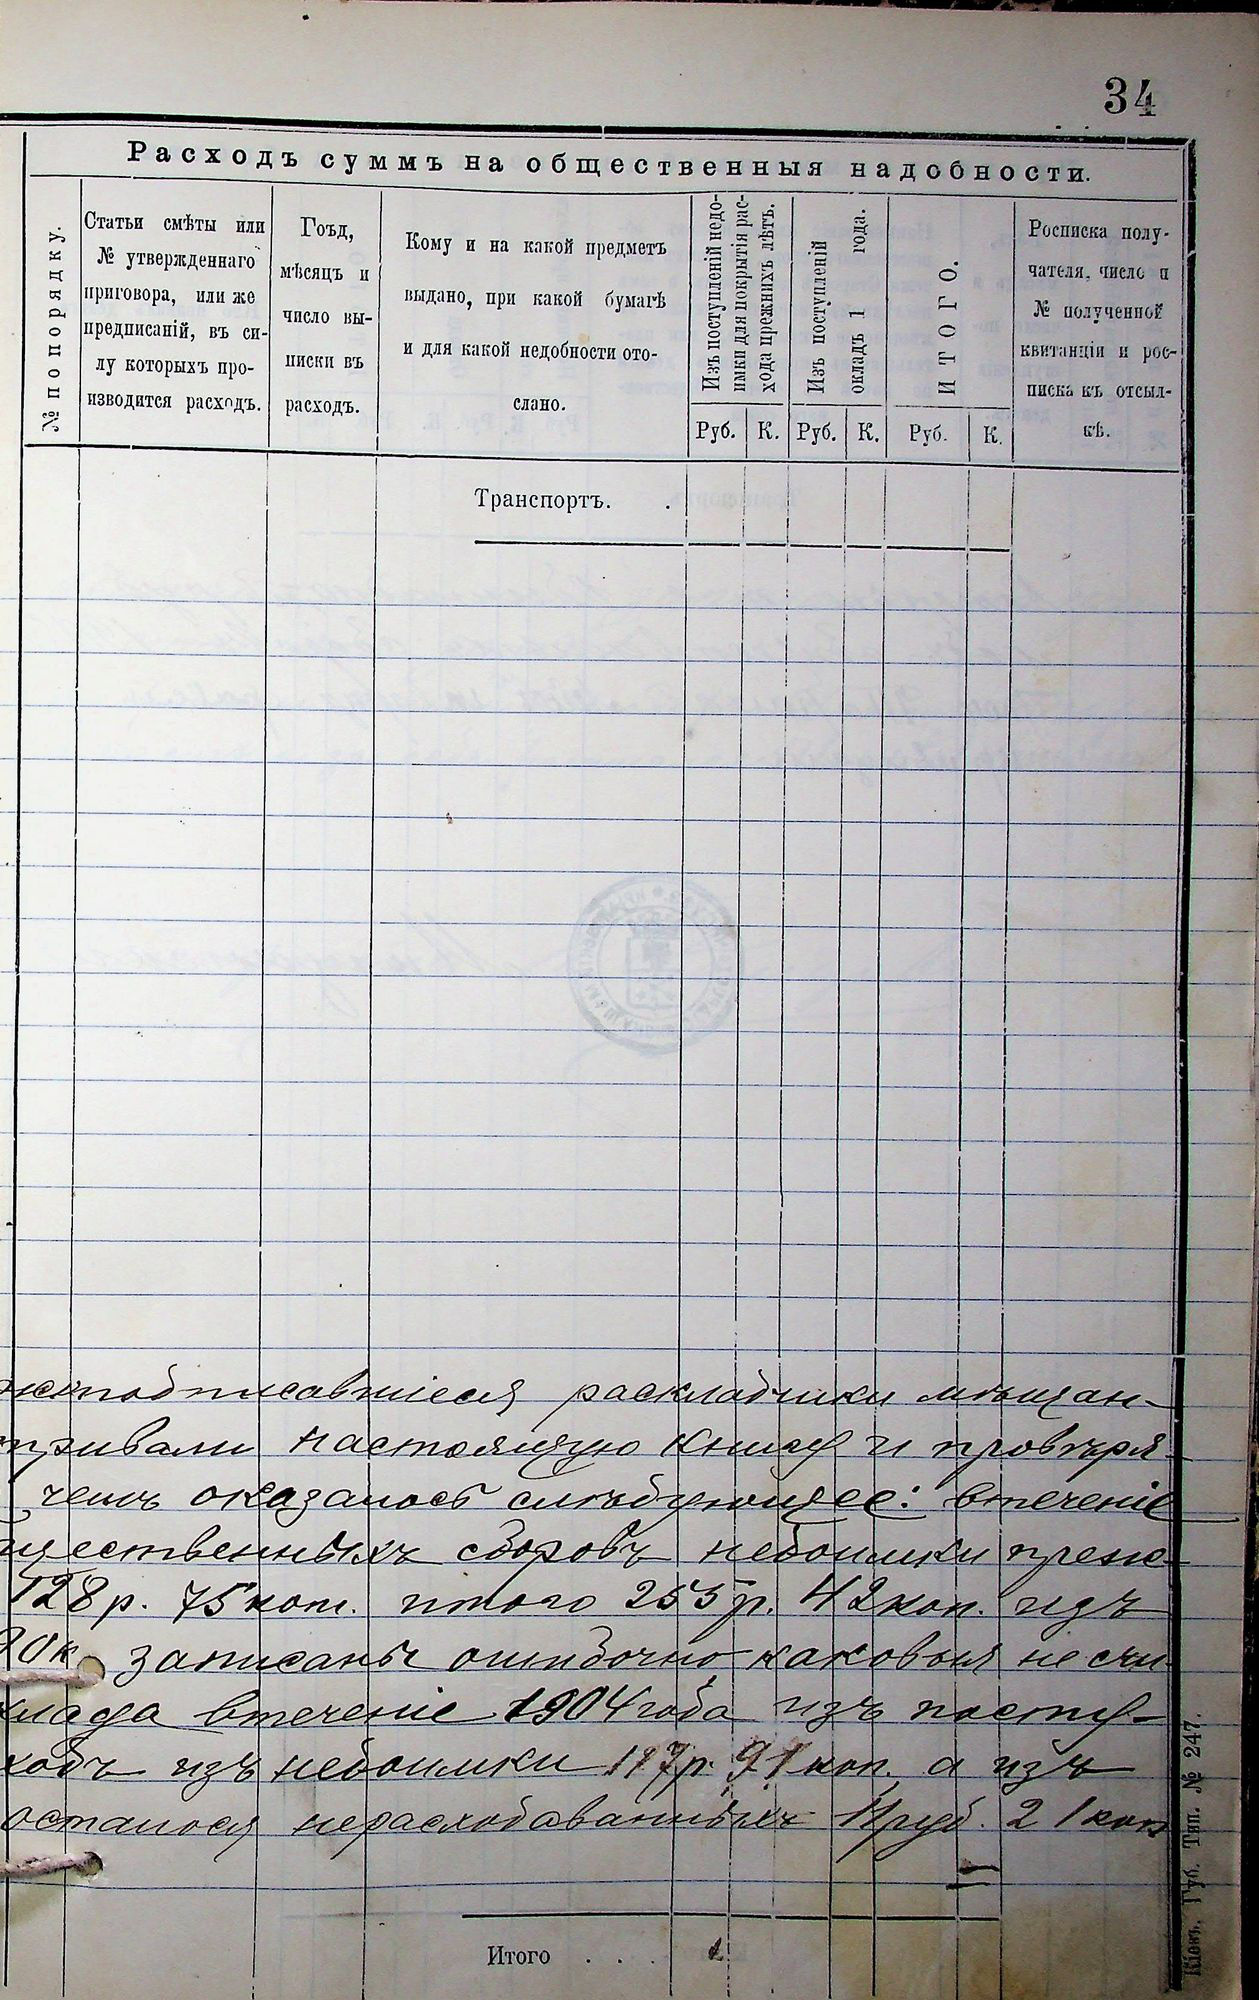 34
Расходъ суммъ на общественныя надобности.
№ по порядку.
Статьи смѣты или
№ утвержденнаго
приговора, или же
предписаній, въ си-
лу которыхъ про-
изводится расходъ.
Гоъд,
мѣсяцъ и
число вы-
писки въ
расходъ.
Кому и на какой предметъ
выдано, при какой бумагѣ
и для какой недобности ото-
слано.
Изъ поступленій недо-
имки для покрытія рас-
хода прежнихъ лѣтъ.
Изъ поступленій
окладъ 1 года.
ИТОГО.
Росписка полу-
чателя, число и
№ полученной
квитанціи и рос-
писка къ отсыл-
кѣ.
Руб. К. Руб. К. Руб. К.
Транспортъ. .
раскладчики мѣщан-
настоящую книгу и провѣря-
чемъ оказалось слѣдующее: втеченіе
щественныхъ сборовъ недоимки преж-
128 р. 75 коп. итого 255 р. 42 коп. изъ
записаны ошибочно каковыя не счи-
клада втеченіе 1904 года изъ посту-
ходъ изъ недоимки 117 р. 91 коп. а изъ
осталося нерасходаванныхъ 11 руб. 21 коп
Итого . . . .
Кіевъ, Губ. Тип. № 247.